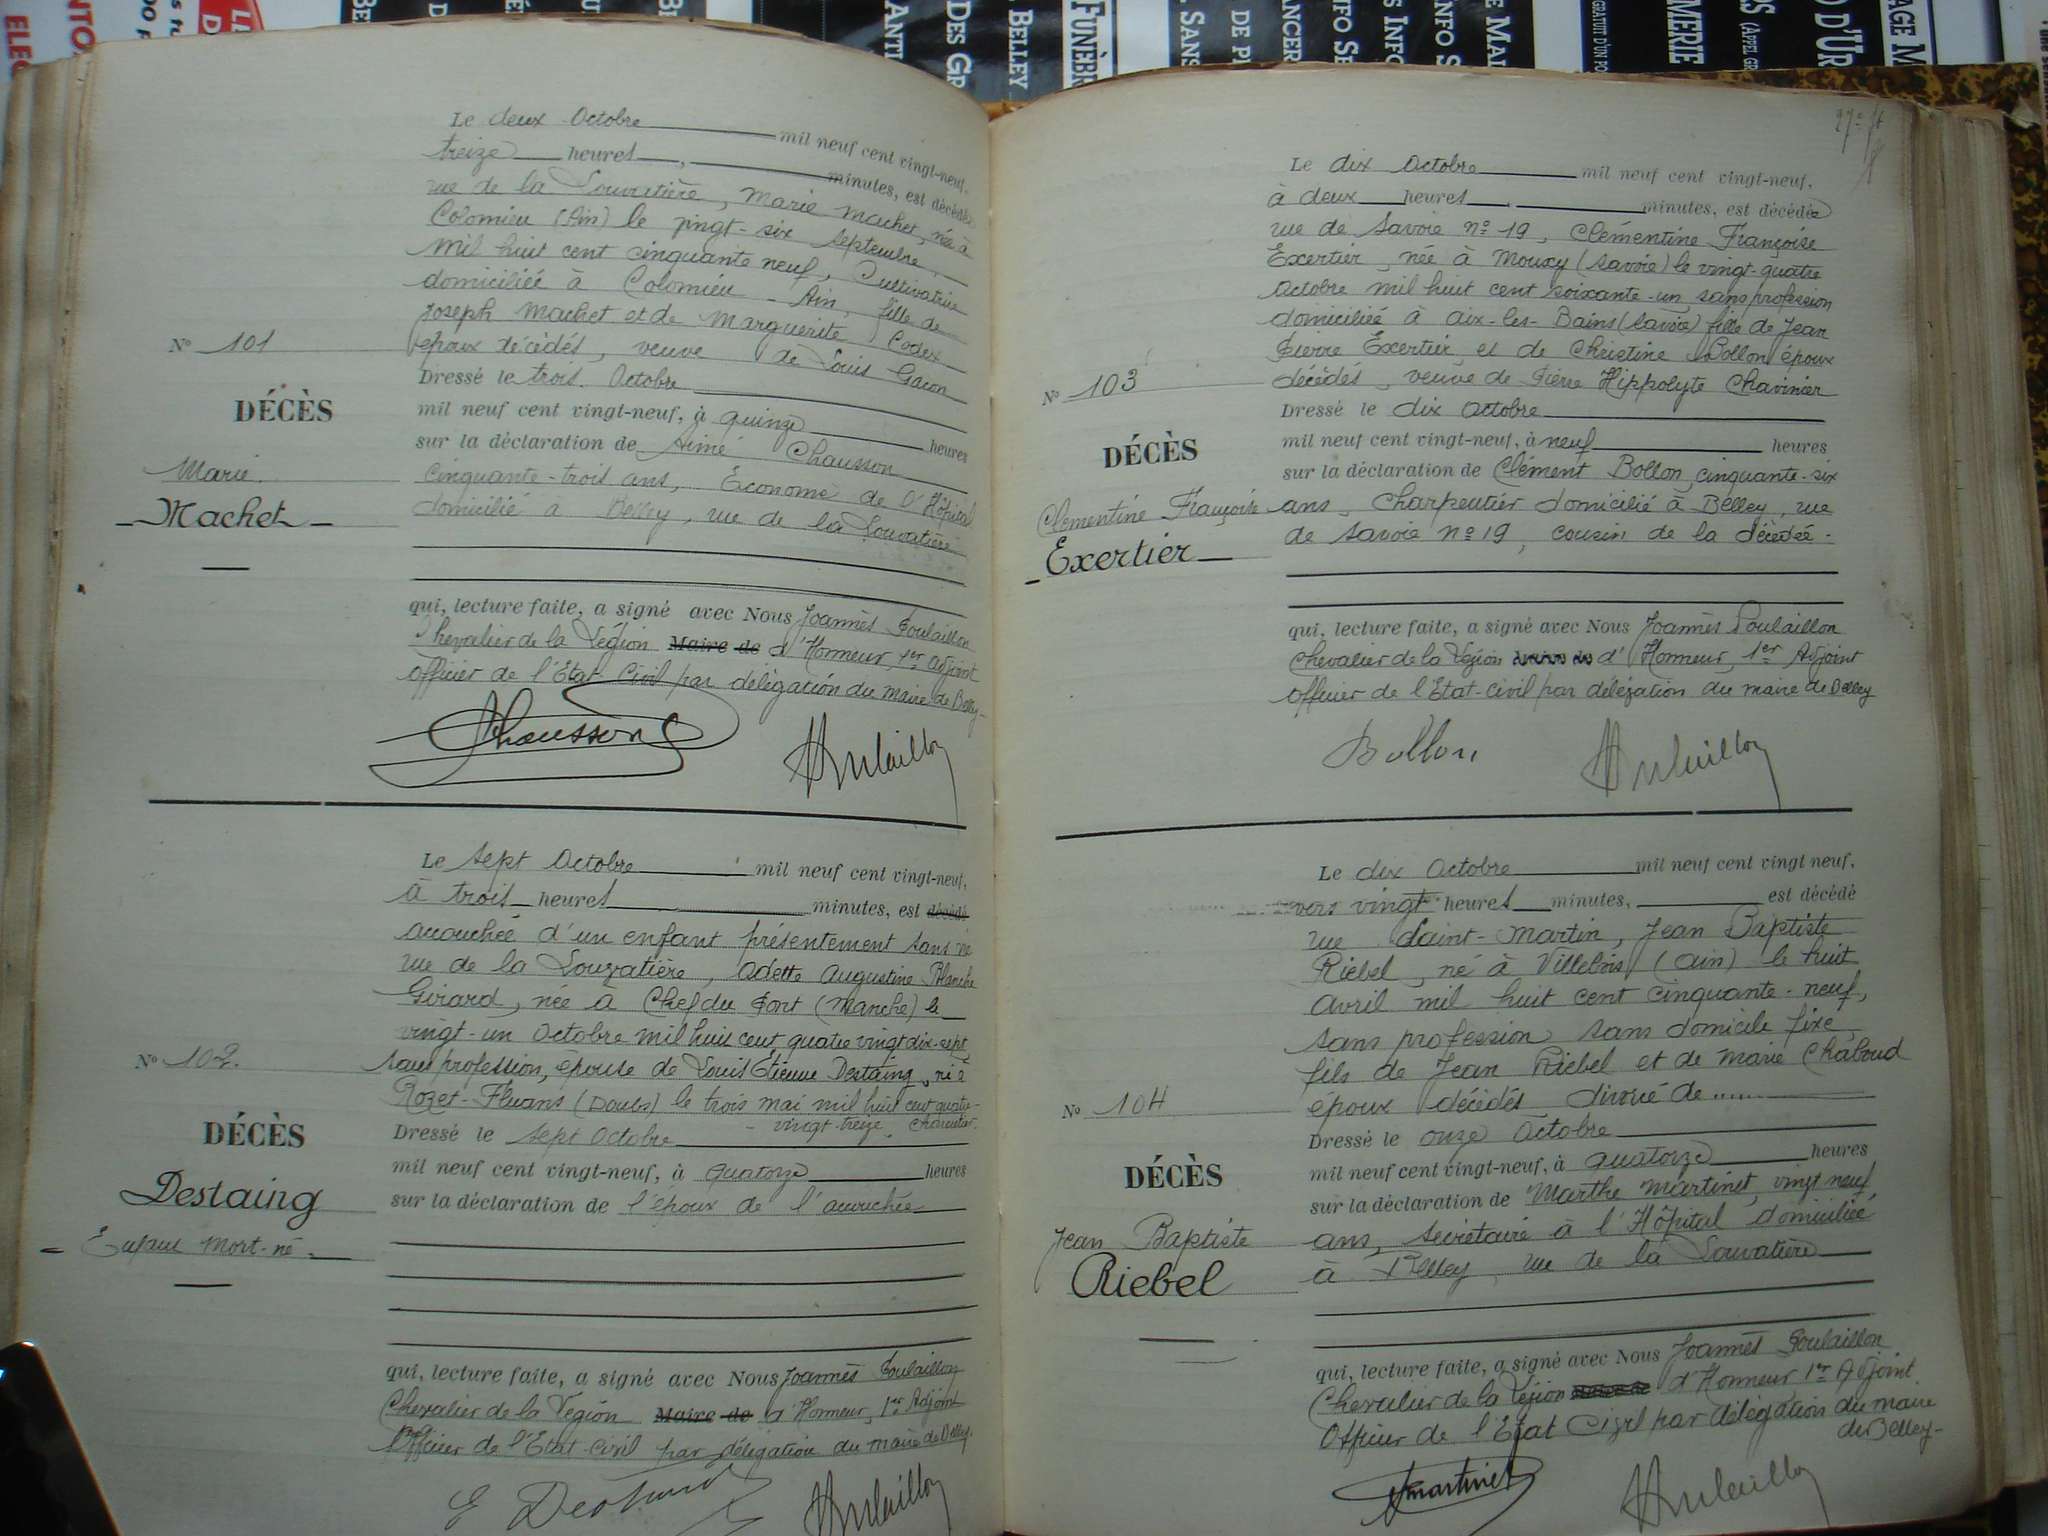 Le deux Octobre mil neuf cent vingt-neuf,
treize heures, minutes, est décédée
rue de la Louvatière, Marie Machet, née à
Colomieu (Ain) le vingt-six septembre
mil huit cent cinquante neuf, Cultivatrice
domiciliée à Colomieu - Ain, fille de
Joseph Machet et de Marguerite Codex
époux décédés, veuve de Louis Gacon
Dressé le trois Octobre
mil neuf cent vingt-neuf, à quinze heures
sur la déclaration de Aimé Chausson
cinquante-trois ans, Econome de l'Hôpital
domicilié à Belley, rue de la Louvatière
qui, lecture faite, a signé avec Nous Joannès Poulaillon
Chevalier de la Légion Maire de d'Honneur, 1er adjoint
officier de l'Etat-Civil par délégation du maire de Belley-
Chausson
Poulaillon
No 101
DÉCÈS
Marie
Machet
Le sept Octobre mil neuf cent vingt-neuf,
à trois heures minutes, est décédé
accouchée d'un enfant présentement sans vie
rue de la Louvatière, Odette Augustine Blanche
Girard, née à Chef du Pont (Manche) le
vingt-un Octobre mil huit cent quatre vingt dix-sept
sans profession, épouse de Louis Etienne Destaing, né à
Rozet-Fluans (Doubs) le trois mai mil huit cent quatre-
vingt-treize,
Dressé le sept Octobre
mil neuf cent vingt-neuf, à quatorze heures
sur la déclaration de l'époux de l'accouchée
qui, lecture faite, a signé avec Nous Joannès Poulaillon
Chevalier de la Légion Maire de d'Honneur, 1er Adjoint
Officier de l'Etat-Civil par délégation du maire de Belley.
Poulaillon
No 102
DÉCÈS
Destaing
Enfant Mort-né
Le dix Octobre mil neuf cent vingt-neuf,
à deux heures, minutes, est décédée
rue de Savoie no 19, Clémentine Françoise
Exertier, née à Mouxy (Savoie) le vingt-quatre
Octobre mil huit cent soixante-un, sans profession
domiciliée à Aix-les-Bains (Savoie) fille de Jean
Pierre Exertier et de Christine Bollon époux
décédés, veuve de Pierre Hippolyte Chavinier
Dressé le dix Octobre
mil neuf cent vingt-neuf, à neuf heures
sur la déclaration de Clément Bollon, cinquante-six
ans, Charpentier domicilié à Belley, rue
de Savoie no 19, cousin de la décédée.
qui, lecture faite, a signé avec Nous Joannès Poulaillon
Chevalier de la Légion d'Honneur, 1er Adjoint
Officier de l'Etat-Civil par délégation du maire de Belley
Bollon
Poulaillon
No 103
DÉCÈS
Clémentine Françoise
Exertier
Le dix Octobre mil neuf cent vingt neuf,
vers vingt heures minutes, est décédé
rue Saint-Martin, Jean Baptiste
Riebel, né à Villebois (Ain) le huit
Avril mil huit cent cinquante-neuf,
sans profession, sans domicile fixe,
fils de Jean Riebel et de Marie Chaboud
époux décédés divorcé de ......
Dressé le onze Octobre
mil neuf cent vingt-neuf, à quatorze heures
sur la déclaration de Marthe Martinet, vingt neuf
ans, secrétaire à l'Hôpital domiciliée
à Belley, rue de la Louvatière
qui, lecture faite, a signé avec Nous Joannès Poulaillon
Chevalier de la Légion d'Honneur 1er Adjoint
Officier de l'Etat Civil par délégation du maire
de Belley-
Martinet
Poulaillon
No 104
DÉCÈS
Jean Baptiste
Riebel